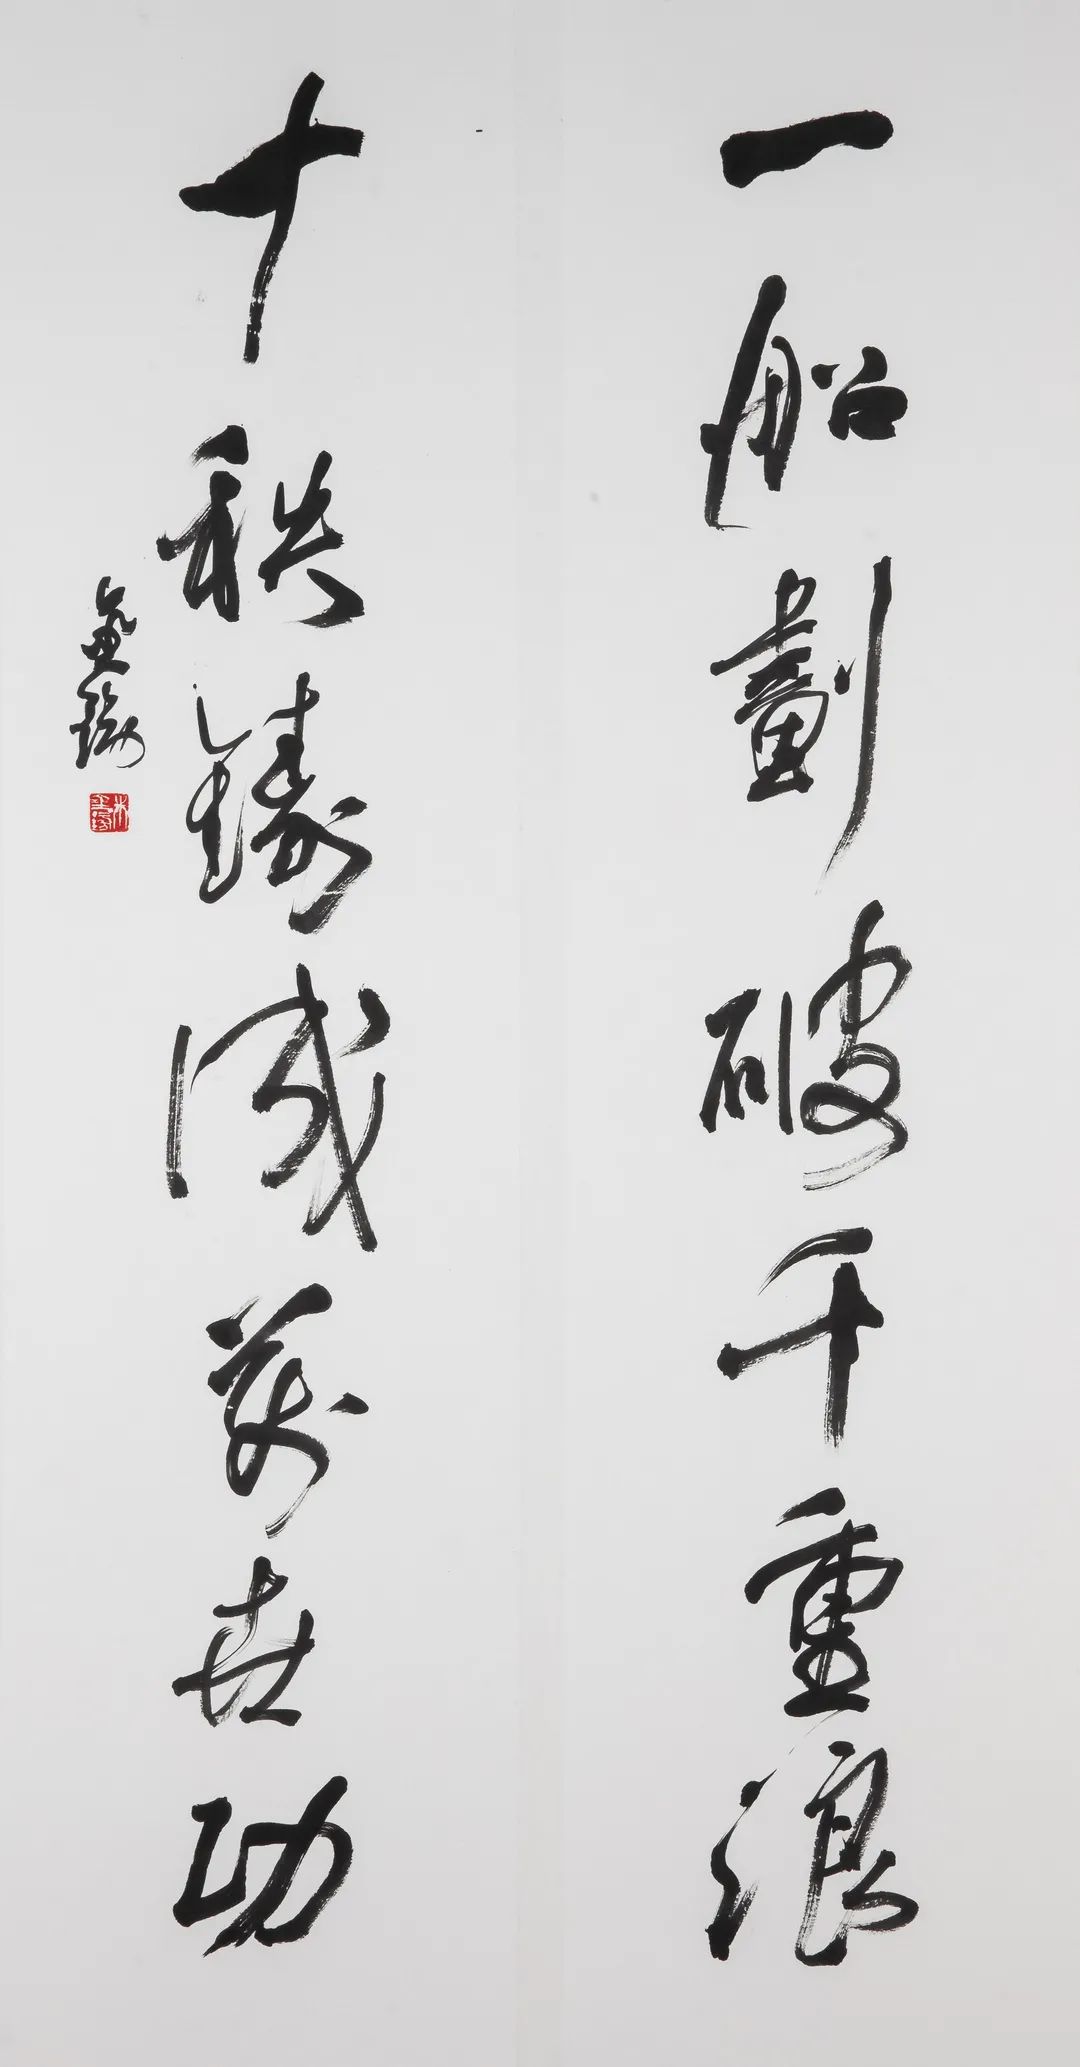 一船劃破千重浪
十秩鑄成萬世功